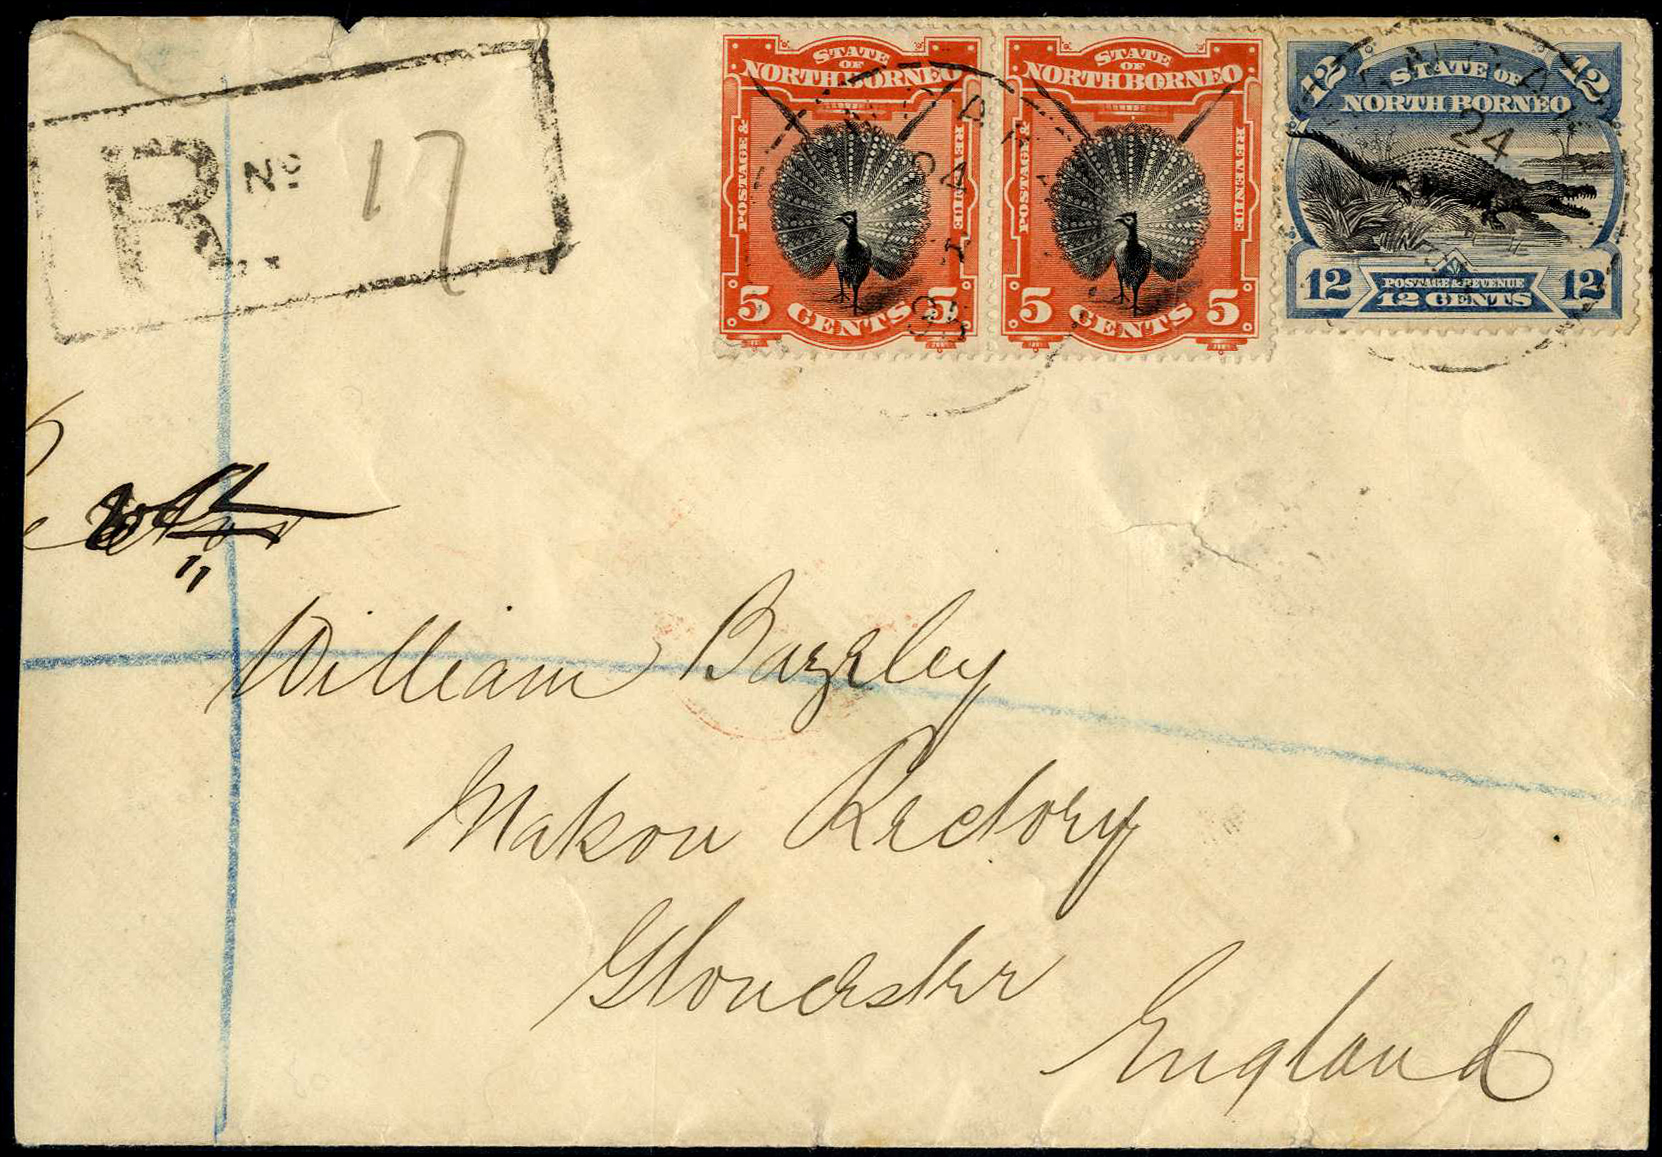 R No 17
STATE
OF
NORTH BORNEO
POSTAGE &
REVENUE
5 CENTS 5
STATE
OF
NORTH BORNEO
POSTAGE &
REVENUE
5 CENTS 5
12 12
STATE OF
NORTH BORNEO
12 POSTAGE & REVENUE 12
12 CENTS
24
95
24
William Bazeley
Matson Rectory
Gloucester
England